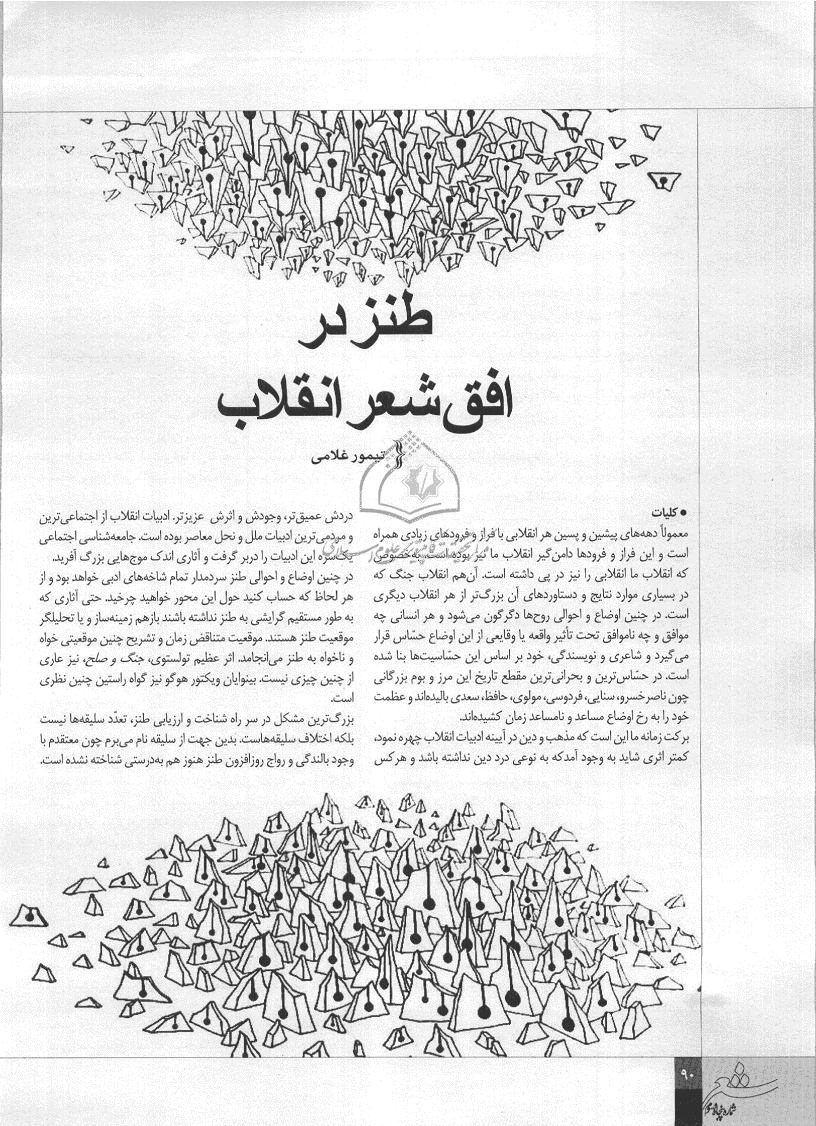 طنز در
افق شعر انقلاب
تیمور غلامی
● کلیات
معمولاً دهه‌های پیشین و پسین هر انقلابی با فراز و فرودهای زیادی همراه
است و این فراز و فرودها دامن‌گیر انقلاب ما نیز بوده است. به‌خصوص
که انقلاب ما انقلابی را نیز در پی داشته است. آن‌هم انقلاب جنگ که
در بسیاری موارد نتایج و دستاوردهای آن بزرگ‌تر از هر انقلاب دیگری
است. در چنین اوضاع و احوالی روح‌ها دگرگون می‌شود و هر انسانی چه
موافق و چه ناموافق تحت تأثیر واقعه یا وقایعی از این اوضاع حسّاس قرار
می‌گیرد و شاعری و نویسندگی، خود بر اساس این حسّاسیت‌ها بنا شده
است. در حسّاس‌ترین و بحرانی‌ترین مقطع تاریخ این مرز و بوم بزرگانی
چون ناصرخسرو، سنایی، فردوسی، مولوی، حافظ، سعدی بالیده‌اند و عظمت
خود را به رخ اوضاع مساعد و نامساعد زمان کشیده‌اند.
برکت زمانه ما این است که مذهب و دین در آیینه ادبیات انقلاب چهره نمود،
کمتر اثری شاید به وجود آمدکه به نوعی درد دین نداشته باشد و هرکس
دردش عمیق‌تر، وجودش و اثرش عزیزتر. ادبیات انقلاب از اجتماعی‌ترین
و مردمی‌ترین ادبیات ملل و نحل معاصر بوده است. جامعه‌شناسی اجتماعی
یک‌سره این ادبیات را دربر گرفت و آثاری اندک موج‌هایی بزرگ آفرید.
در چنین اوضاع و احوالی طنز سردمدار تمام شاخه‌های ادبی خواهد بود و از
هر لحاظ که حساب کنید حول این محور خواهید چرخید. حتی آثاری که
به طور مستقیم گرایشی به طنز نداشته باشند بازهم زمینه‌ساز و یا تحلیلگر
موقعیت طنز هستند. موقعیت متناقض زمان و تشریح چنین موقعیتی خواه
و ناخواه به طنز می‌انجامد. اثر عظیم تولستوی، جنگ و صلح، نیز عاری
از چنین چیزی نیست. بینوایان ویکتور هوگو نیز گواه راستین چنین نظری
است.
بزرگ‌ترین مشکل در سر راه شناخت و ارزیابی طنز، تعدّد سلیقه‌ها نیست
بلکه اختلاف سلیقه‌هاست. بدین جهت از سلیقه نام می‌برم چون معتقدم با
وجود بالندگی و رواج روزافزون طنز هنوز هم به‌درستی شناخته نشده است.
۹۰